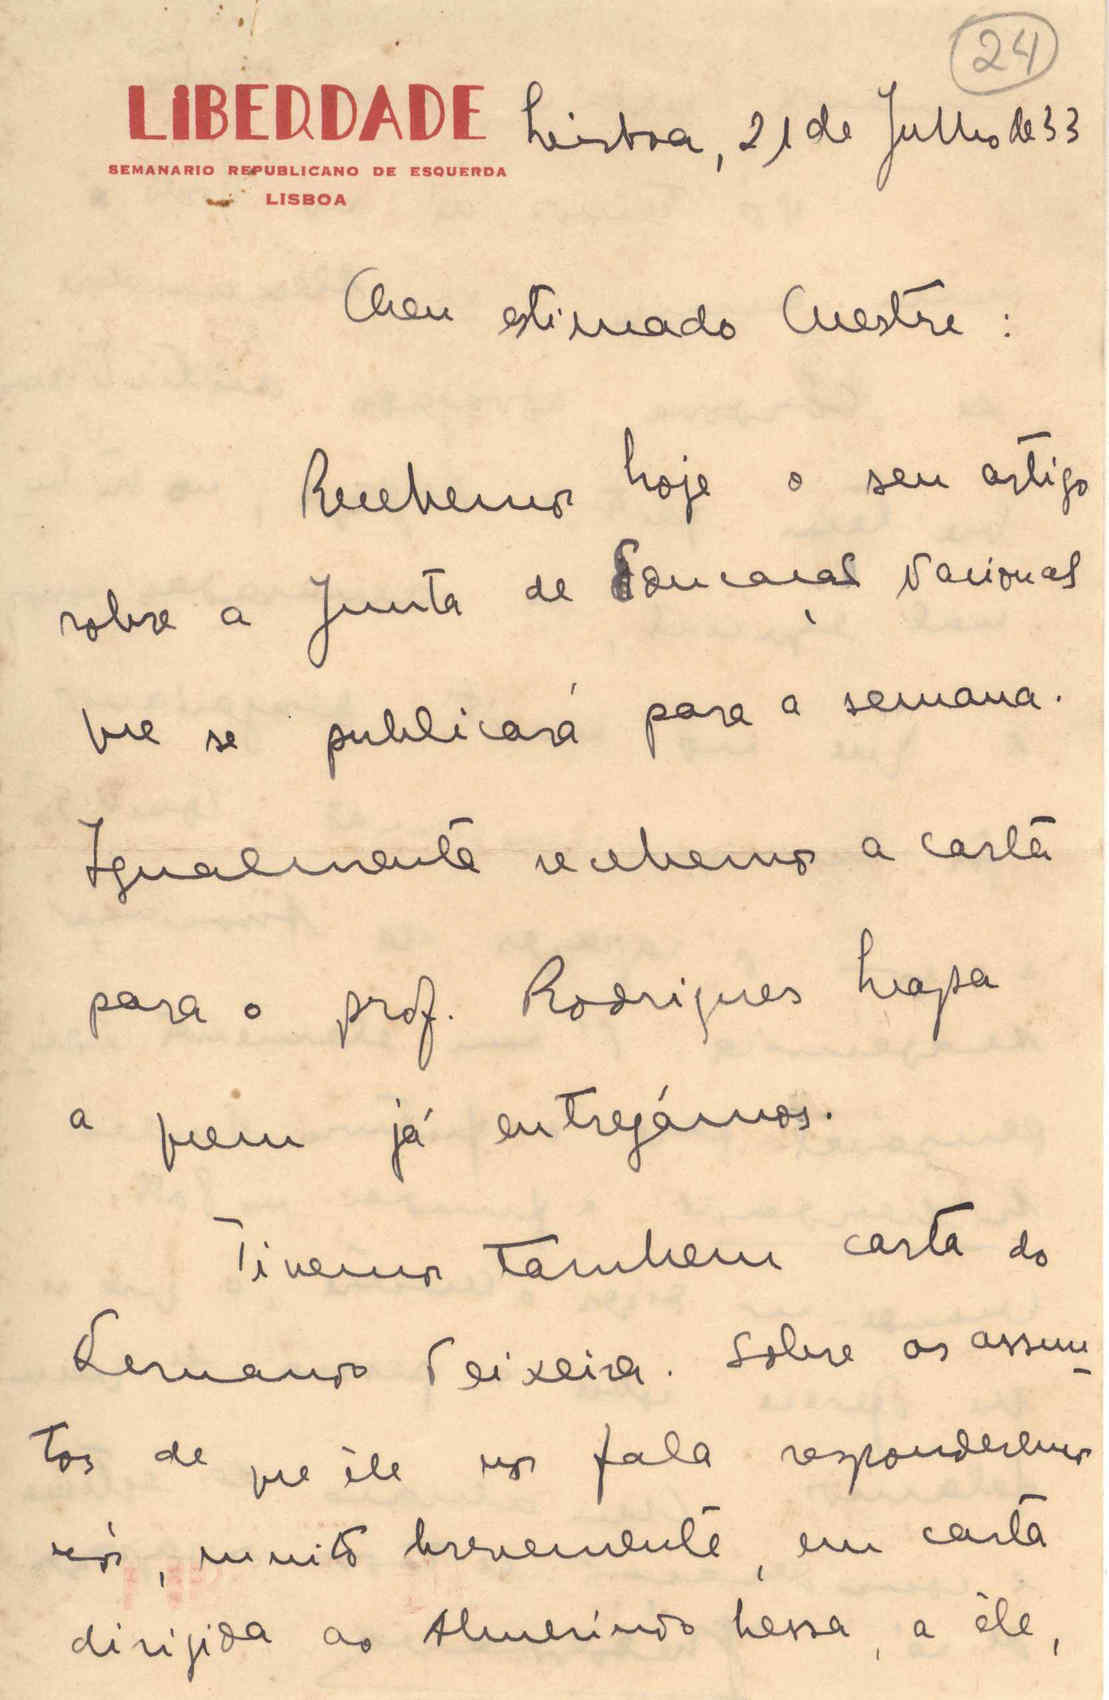 24
LIBERDADE
SEMANARIO REPUBLICANO DE ESQUERDA
LISBOA
Lisboa, 21 de Julho de 33
Meu estimado Mestre:
Recebemos hoje o seu artigo
sobre a Junta de Educação Nacional
que se publicará para a semana.
Igualmente recebemos a carta
para o prof. Rodrigues Lapa
a quem já entregámos.
Tivemos tambem carta do
Fernando Teixeira. Sobre os assun-
tos de que êle nos fala responderemos
nós, muito brevemente, em carta
dirigida ao Almerindo Lessa, a êle,